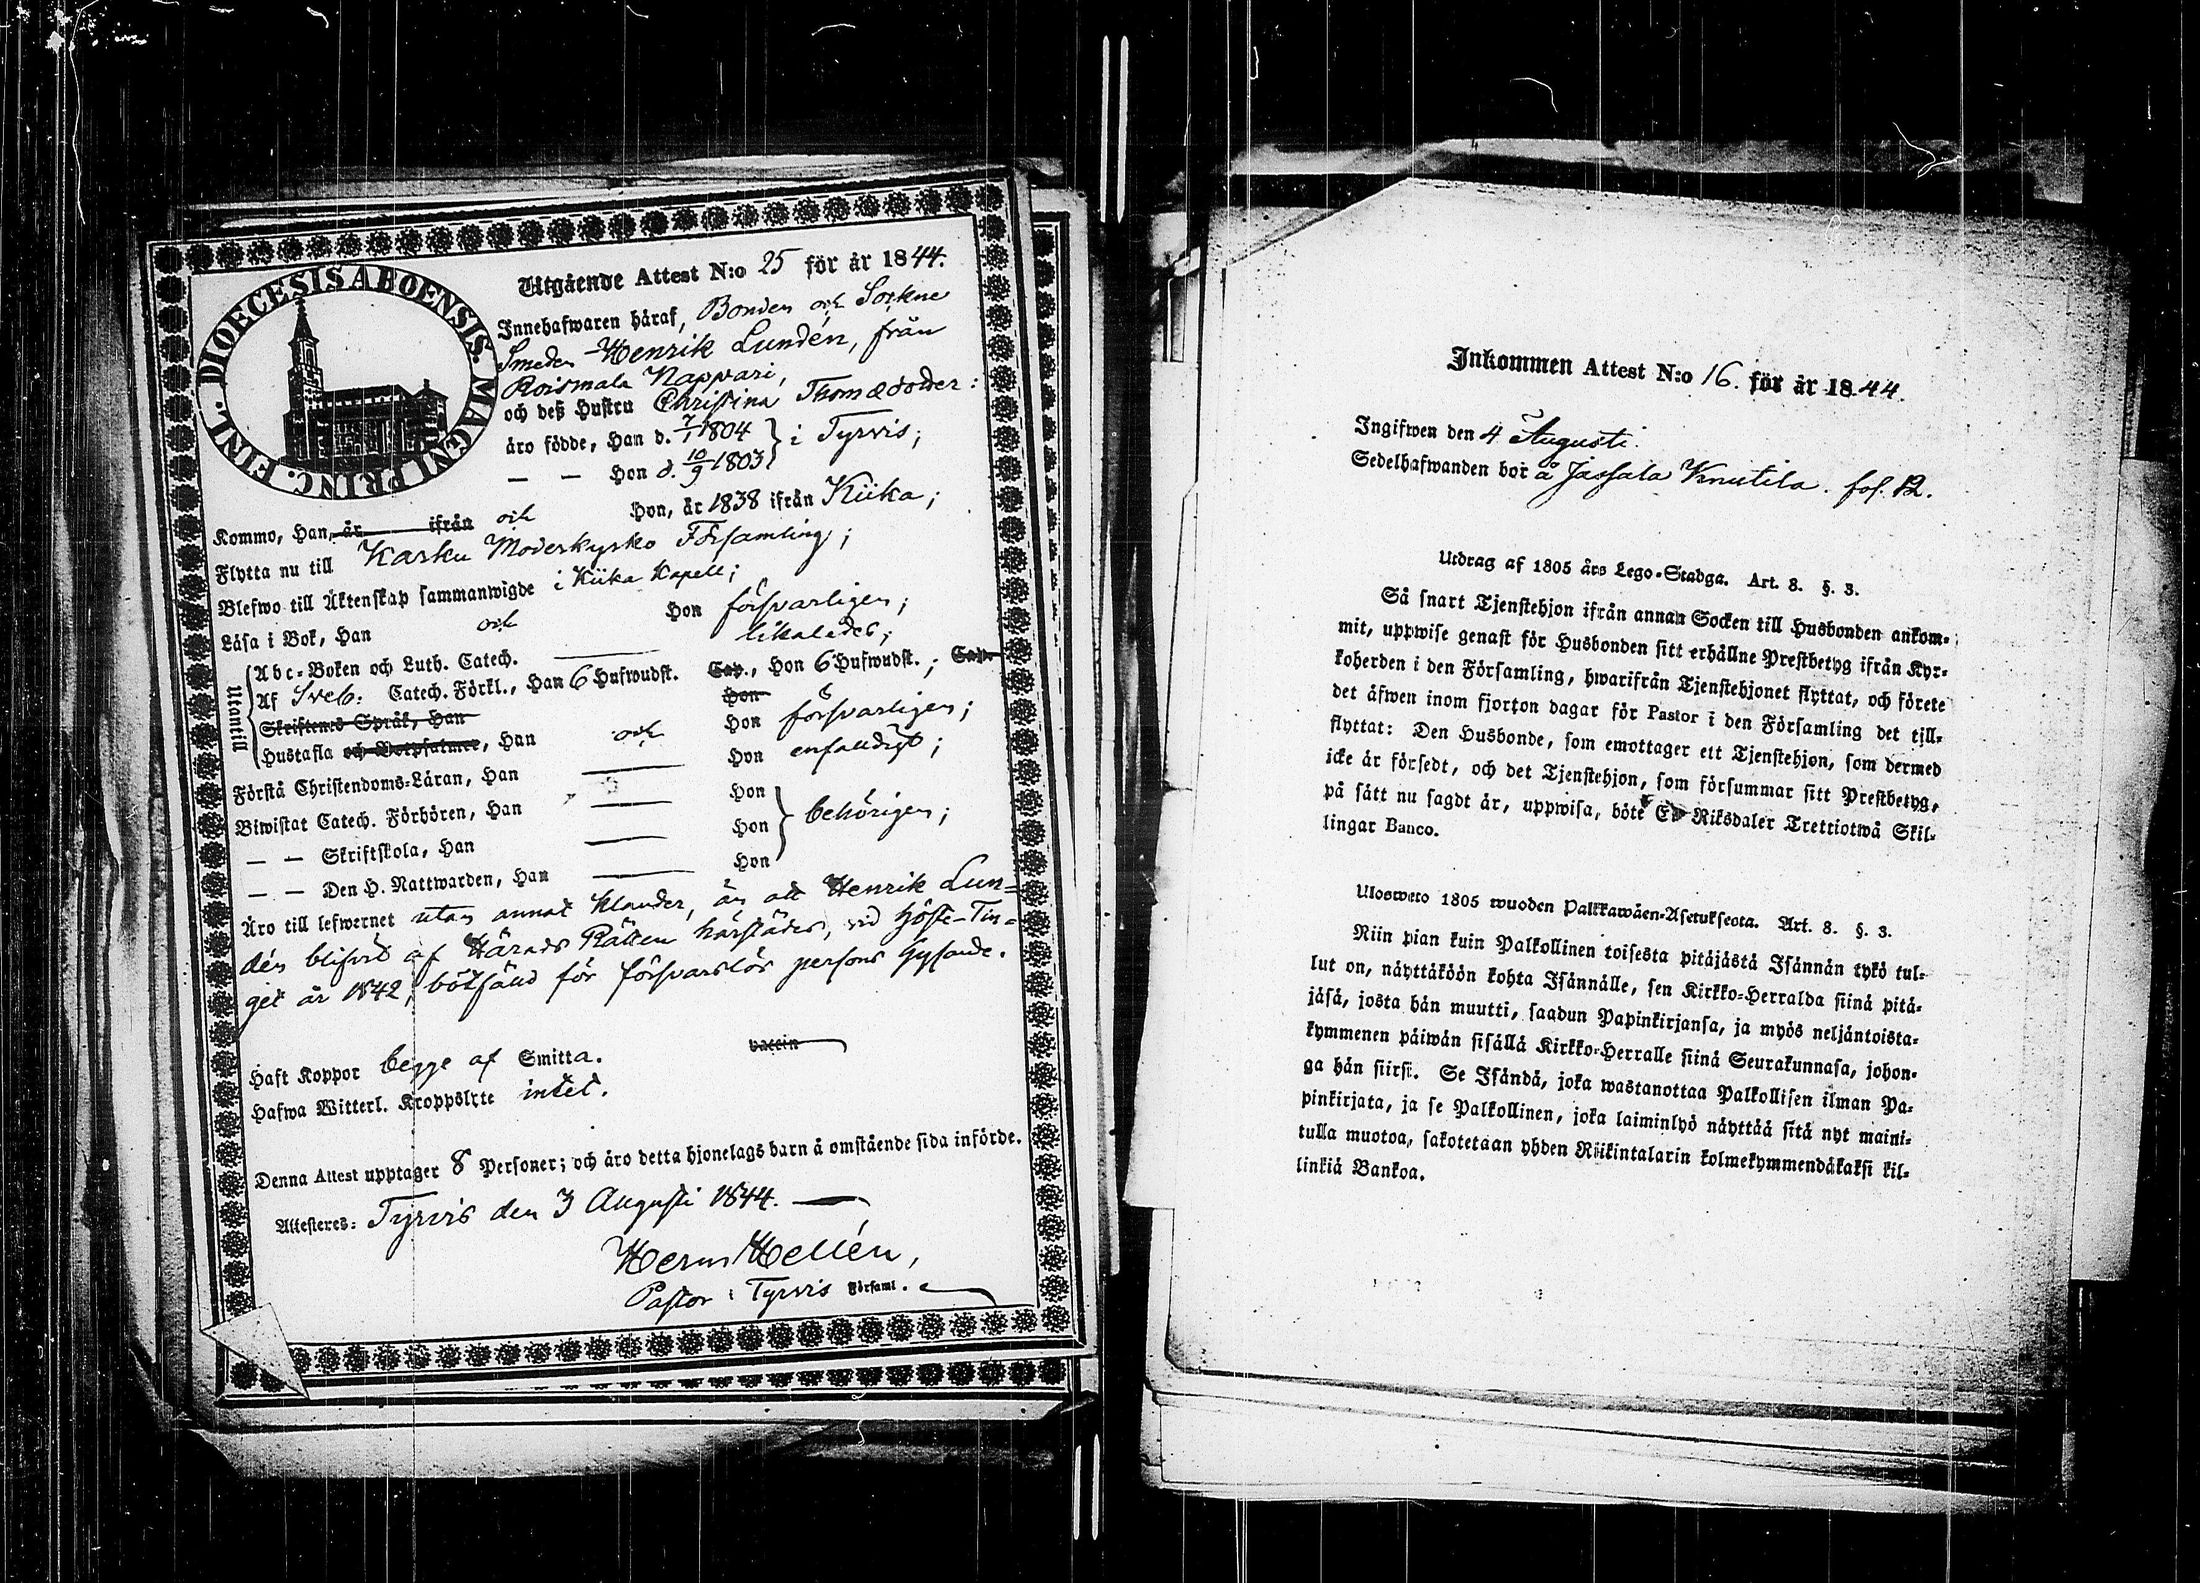 DIOECESIS ABOENSIS. MAGNI PRINC. FINL.
Utgående Attest N:o 25 för år 1844.
Innehafwaren häraf, Bonden och Sockne
Smeden Henrik Lundén, från
Roismala Nappari,
och deß Hustru Christina Thomædotter:
äro födde, Han d. 7/1 1804 } i Tyrvis;
— — Hon d. 10/9 1803
Kommo, Han, år ifrån och Hon, år 1838 ifrån Kiika;
Flytta nu till Karku Moderkyrko Församling;
Blefwo till Äktenskap sammanwigde i Kiika Kapell;
Läsa i Bok, Han och Hon försvarligen;
Utantill
Abc-Boken och Luth. Catech. ——— likaledes;
Af Sveb. Catech. Förkl., Han 6 Hufwudst. Cap., Hon 6 Hufwudst.; Cap.
Skriftenes Språk, Han Hon
Hustafla och Botpsalmer, Han och Hon försvarligen;
Förstå Christendoms-Läran, Han ——— Hon enfaldigt;
Biwistat Catech. Förhören, Han ——— Hon
— — Skriftskola, Han ——— Hon } behörigen;
— — Den H. Nattwarden, Han ——— Hon
Äro till lefwernet utan annat klander, än att Henrik Lun=
dén blifvit af Härads Rätten härstädes, vid Höste-Tin=
get år 1842, bötfälld för försvarslös persons hysande.
Haft Koppor begge af Smitta. vaccin
Hafwa Witterl. Kroppslyte intet.
Denna Attest upptager 8 Personer; och äro detta hjonelags barn å omstående sida införde.
Attesteres: Tyrvis den 3 Augusti 1844.
Herm Hellén,
Pastor i Tyrvis Församl.
Inkommen Attest N:o 16. för år 1844.
Ingifwen den 4 Augusti.
Sedelhafwanden bor å Jassala Knutila. fol. 12.
Utdrag af 1805 års Lego-Stadga. Art. 8. §. 3.
Så snart Tjenstehjon ifrån annan Socken till Husbonden ankom-
mit, uppwise genast för Husbonden sitt erhållne Prestbetyg ifrån Kyr-
koherden i den Församling, hwarifrån Tjenstehjonet flyttat, och förete
det äfwen inom fjorton dagar för Pastor i den Församling det till-
flyttat: Den Husbonde, som emottager ett Tjenstehjon, som dermed
icke är försedt, och det Tjenstehjon, som försummar sitt Prestbetyg,
på sätt nu sagdt är, uppwisa, böte En Riksdaler Trettiotwå Skil-
lingar Banco.
Uloswето 1805 wuoden Palkkawäen-Asetuksesta. Art. 8. §. 3.
Niin pian kuin Palkollinen toisesta pitäjästä Isännän tykö tul-
lut on, näyttäköön kohta Isännälle, sen Kirkko-Herralda siinä pitä-
jäsä, josta hän muutti, saadun Papinkirjansa, ja myös neljäntoista-
kymmenen päiwän sisällä Kirkko-Herralle siinä Seurakunnasa, johon-
ga hän siirsi. Se Isändä, joka wastanottaa Palkollisen ilman Pa-
pinkirjata, ja se Palkollinen, joka laiminlyö näyttää sitä nyt maini-
tulla muotoa, sakotetaan yhden Riikintalarin kolmekymmendäkaksi kil-
linkiä Bankoa.